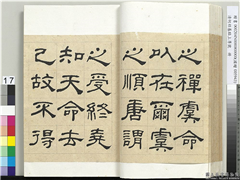 之禪虞命
以在爾虞
之順唐謂
之受終堯
知天命去
己故不得
17